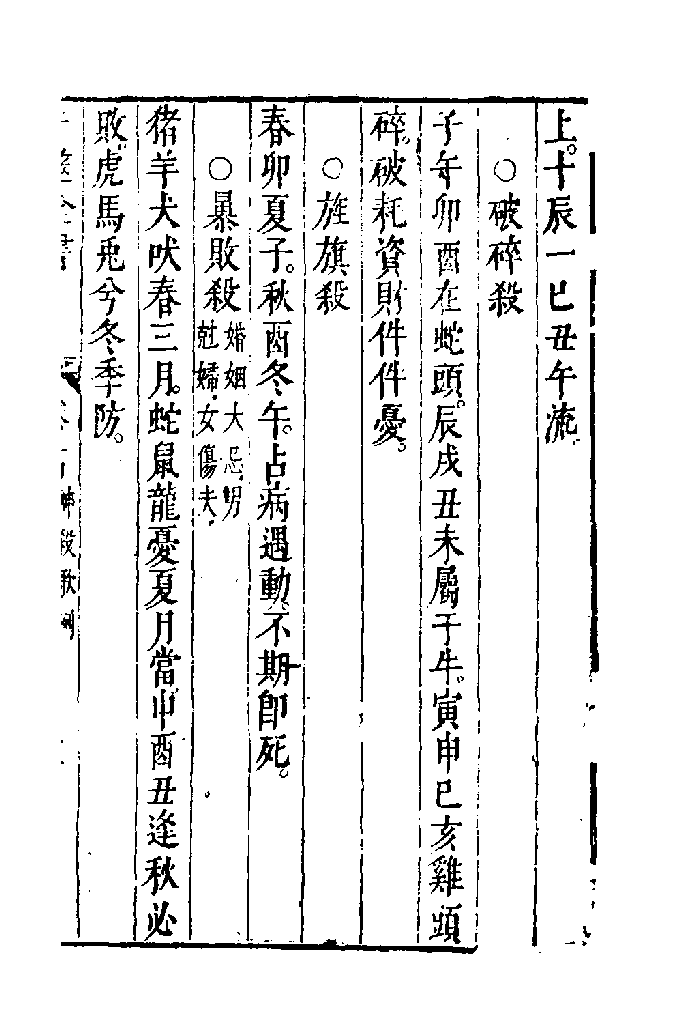 上。十辰一巳丑午流。
○破碎殺
子午卯酉在蛇頭。辰戌丑未屬于牛。寅申巳亥雞頭
碎。破耗資財件件憂。
○旌旗殺
春卯夏子。秋酉冬午。占病遇動。不期卽死。
○暴敗殺 婚姻大忌。男尅婦。女傷夫。
猪羊犬吠春三月。蛇鼠龍憂夏月當。申酉丑逢秋必
敗。虎馬兎兮冬季防。
神殺歌例